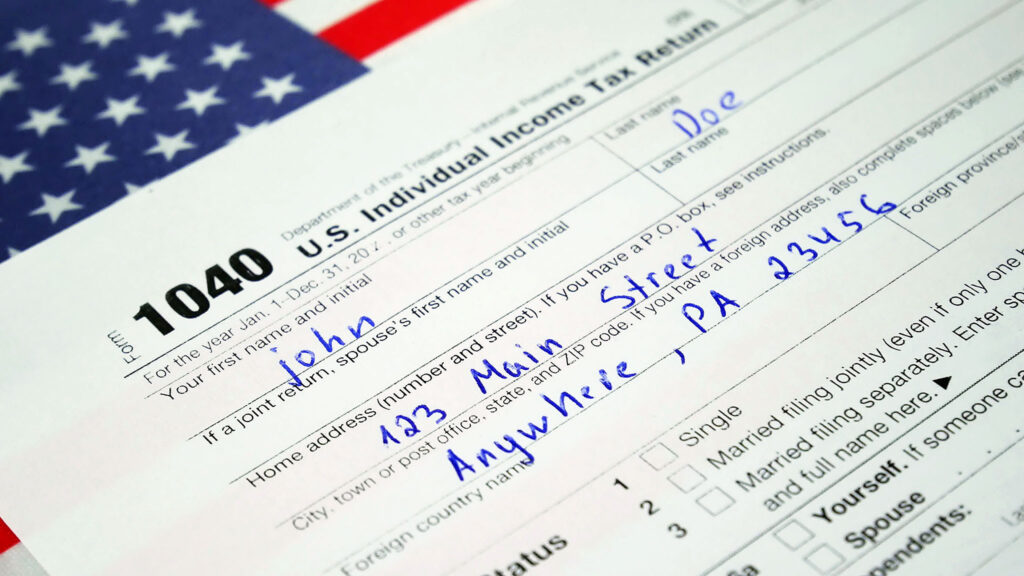 Form 1040
Department of the Treasury - Internal Revenue Service
U.S. Individual Income Tax Return
For the year Jan. 1-Dec. 31, 20 , or other tax year beginning
Your first name and initial
Last name
john
Doe
If a joint return, spouse's first name and initial
Last name
Home address (number and street). If you have a P.O. box, see instructions.
123 Main Street
City, town or post office, state, and ZIP code. If you have a foreign address, also complete spaces below (see
Anywhere, PA 23456
Foreign country name
Foreign province/
1 Single
2 Married filing jointly (even if only one
3 Married filing separately. Enter
and full name here. ▶
Yourself. If someone
Spouse